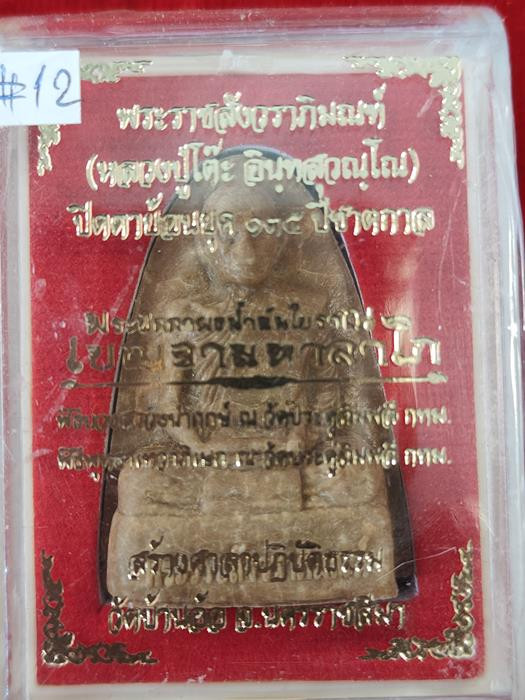 #12
พระราชสังวราภิมณฑ์
(หลวงปู่โต๊ะ อินฺทสุวณฺโณ)
ปิดตาย้อนยุค ๑๓๕ ปีชาตกาล
เบญจามหาลาโภ
ณ วัดประดู่ฉิมพลี กทม.
ณ วัดประดู่ฉิมพลี กทม.
สร้างศาลาปฏิบัติธรรม
จ.นครราชสีมา